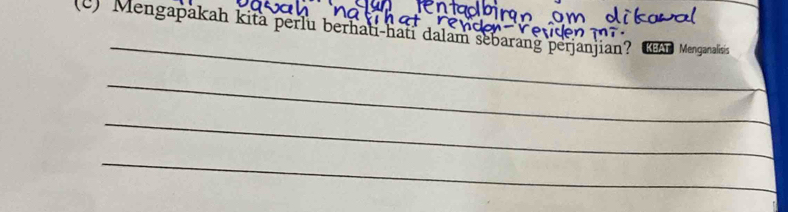 bawah nasihat dan Pentadbiran om dikawal
residen-residen ini.
(c) Mengapakah kita perlu berhati-hati dalam sebarang perjanjian? KBAT Menganalisis